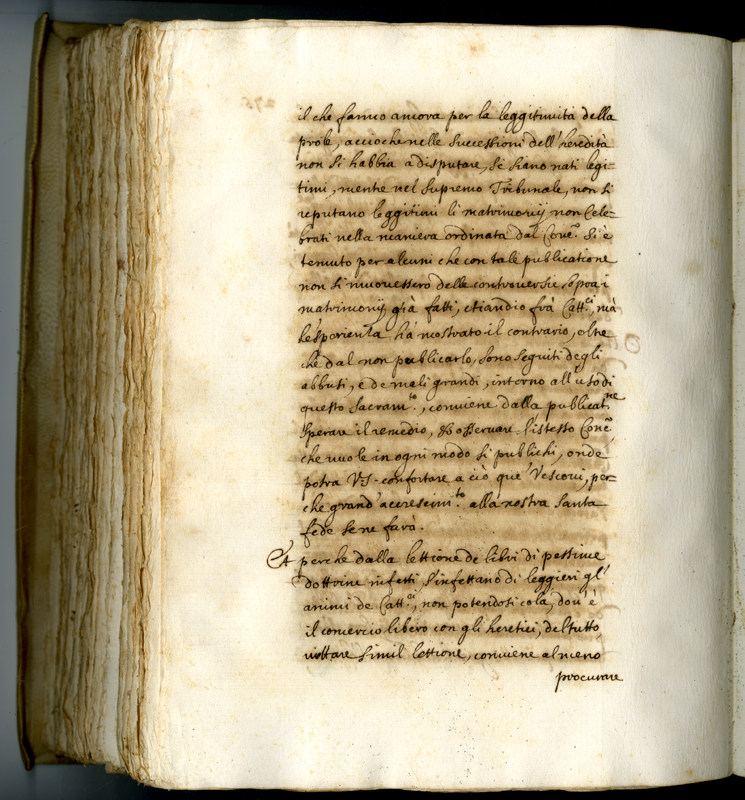 il che fanno ancora per la leggitimità della
prole, acciòche nelle successioni dell'heredità
non si habbia à disputare, se siano nati legi=
timi, mentre nel supremo Tribunale, non si
reputano leggitimi li matrimonij non Cele=
brati nella maniera ordinata dal Conc.º Si è
temuto per alcuni che con tale publicatione
non si muovessero delle controversie sopra i
matrimonij già fatti, etiandio frà Catt.ci, mà
l'esperienza hà mostrato il contrario, oltre
chè dal non publicarlo, sono seguiti degli
abbusi, e de mali grandi, intorno all'uso di
questo sacram.to, conviene dalla publicat.ne
sperare il remedio, et osservare l'istesso Conc.º
che vuole in ogni modo si publichi, onde
potrà VS. confortare a ciò que' Vescovi, per=
che grand'accrescim.to alla nostra santa
fede se ne farà.
Et perche dalla lettione de libri di pessime
dottrine infetti, s'infettano di leggieri gl'
animi de Catt.ci, non potendosi colà, dov'è
il comercio libero con gli heretici, del tutto
vietare simil lettione, conviene almeno
procurare